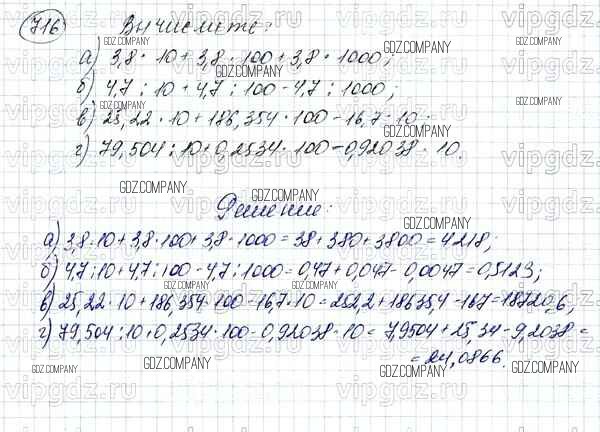 716 Вычислите:
а) 3,8 · 10 + 3,8 · 100 + 3,8 · 1000;
б) 4,7 : 10 + 4,7 : 100 - 4,7 : 1000;
в) 25,22 · 10 + 186,354 · 100 - 16,7 · 10;
г) 79,504 : 10 + 0,2534 · 100 - 0,92038 · 10.
Решение:
а) 3,8·10 + 3,8·100 + 3,8·1000 = 38 + 380 + 3800 = 4218;
б) 4,7:10 + 4,7:100 - 4,7:1000 = 0,47 + 0,047 - 0,0047 = 0,5123;
в) 25,22·10 + 186,354·100 - 16,7·10 = 252,2 + 18635,4 - 167 = 18720,6;
г) 79,504:10 + 0,2534·100 - 0,92038·10 = 7,9504 + 25,34 - 9,2038 =
= 24,0866.
GDZ.COMPANY
vipgdz.ru